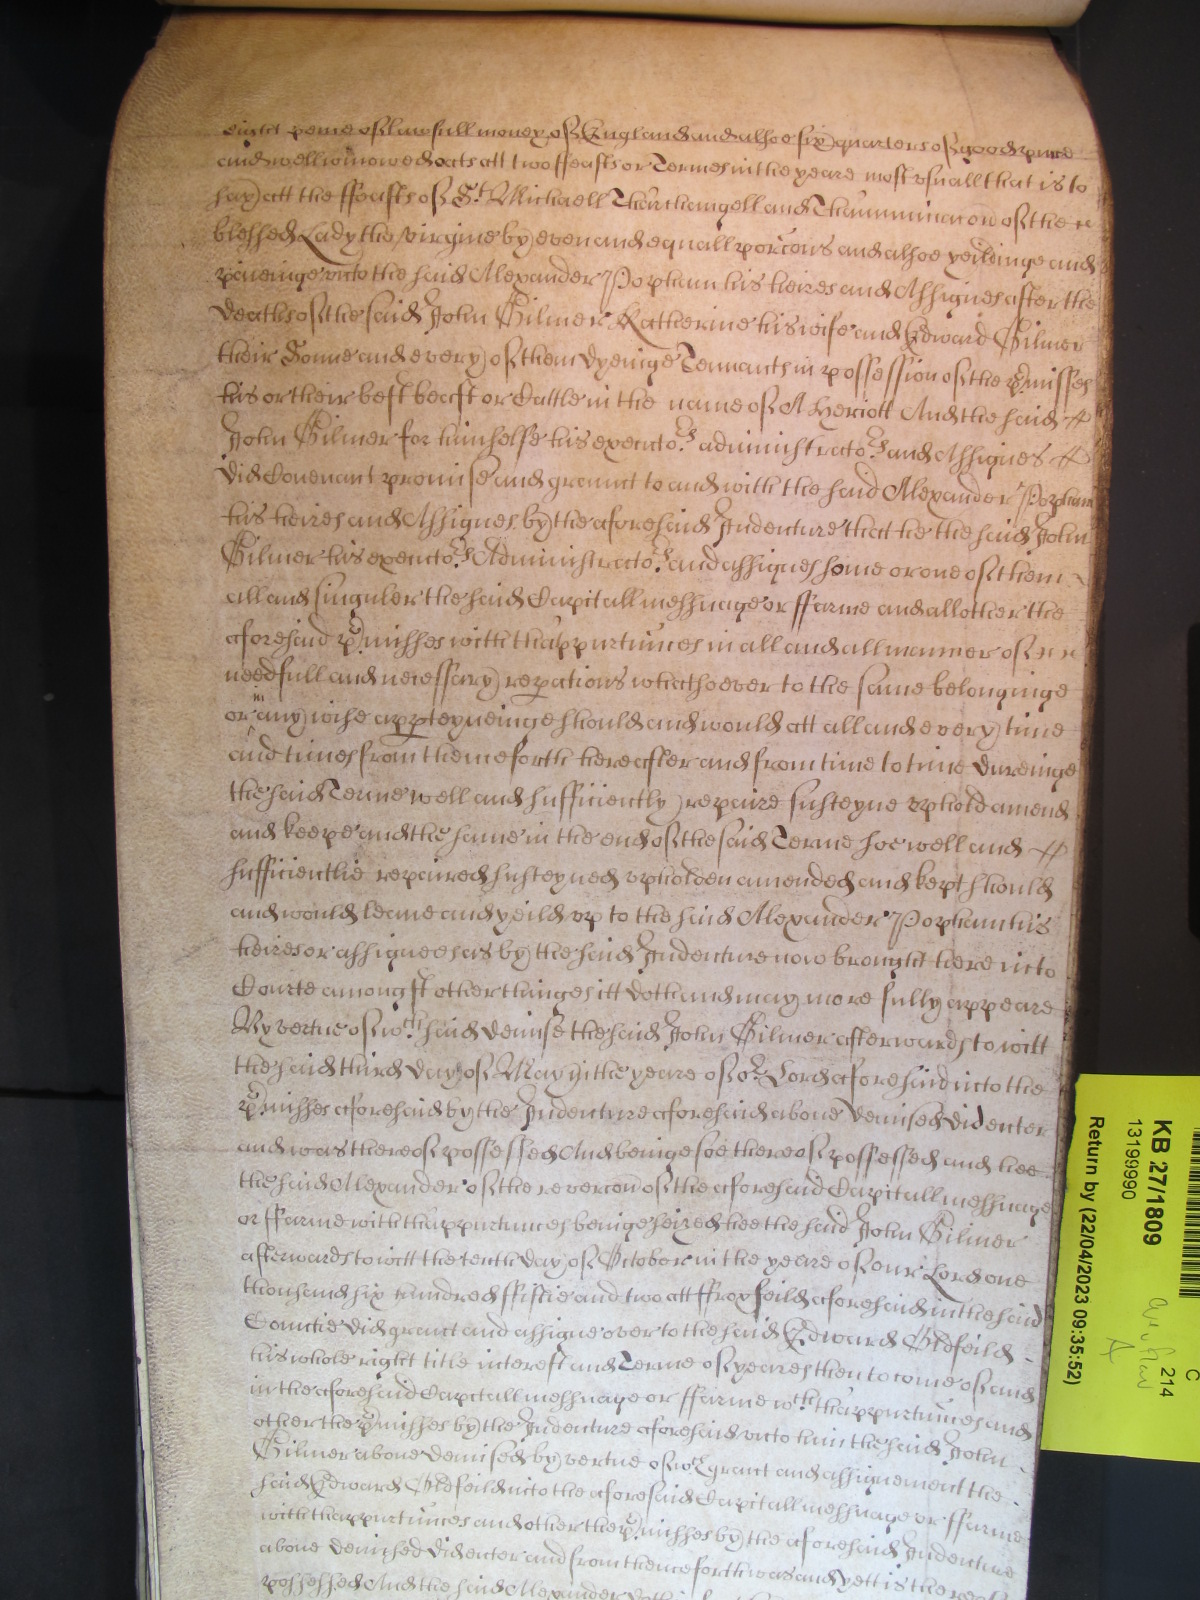 eight pence of lawfull money of England and alsoe six quarters of good pure
and well winnowed oats att two ffeasts or Termes in the yeare most usuall that is to
say att the ffeasts of St. Michaell Tharchangell and Thannunciacon of the
blessed Lady the virgine by even and equall porcons and alsoe yeildinge and
payeinge unto the said Alexander Popham his heires and Assignes after the
deaths of the said John Gilmer Katherine his wife and Edward Gilmer
their Sonne and every of them dyeinge Tennants in possession of the p'misses
his or their best beast or Cattle in the name of A Heriott And the said
John Gilmer for himselfe his executors administrators and Assignes
did Covenant promise and graunt to and with the said Alexander Popham
his heires and Assignes by the aforesaid Indenture that he the said John
Gilmer his executors Administrators and assignes some or one of them
all and singuler the said Capitall messuage or ffarme and all other the
aforesaid p'misses with thappurtunces in all and all manner of
needfull and necessary repations whatsoever to the same belonginge
or in any wise appteyneinge should and would att all and every time
and times from thenceforth hereafter and from time to time dureinge
the said Terme well and sufficiently repaire susteyne uphold amend
and keepe and the same in the end of the said Terme soe well and
sufficientlie repaired susteyned upholden amended and kept should
and would leave and yeild up to the said Alexander Popham his
heires or assignees as by the said Indenture now brought here into
Courte amongst other things itt doth and may more fully appeare
By vertue of wch. said demise the said John Gilmer afterwards to witt
the said third day of May in the yeare of or. Lord aforesaid into the
p'misses aforesaid by the Indenture aforesaid above demised did enter
and was thereof possessed And beinge soe thereof possessed and hee
the said Alexander of the revercon of the aforesaid Capitall messuage
or ffarme with thappurtunces beinge seized hee the said John Gilmer
afterwards to witt the tenth day of October in the yeare of our Lord one
thousand six hundred ffiftie and two att ffroxfeild aforesaid in the said
Countie did graunt and assigne over to the said Edward Oldfeild
his whole right title interest and Terme of yeares then to come of and
in the aforesaid Capitall messuage or ffarme wth. thappurtunces and
other the p'misses by the Indenture aforesaid unto him the said John
Gilmer above demised by vertue of wch graunt and assignement the
said Edward Oldfeild into the aforesaid Capitall messuage or ffarme
with thappurtunces and other the p'misses by the aforesaid Indenture
above demised did enter and from thenceforth was and yett is thereof
possessed And the said Alexander
C
214
KB 27/1809
13199990
Return by (22/04/2023 09:35:52)